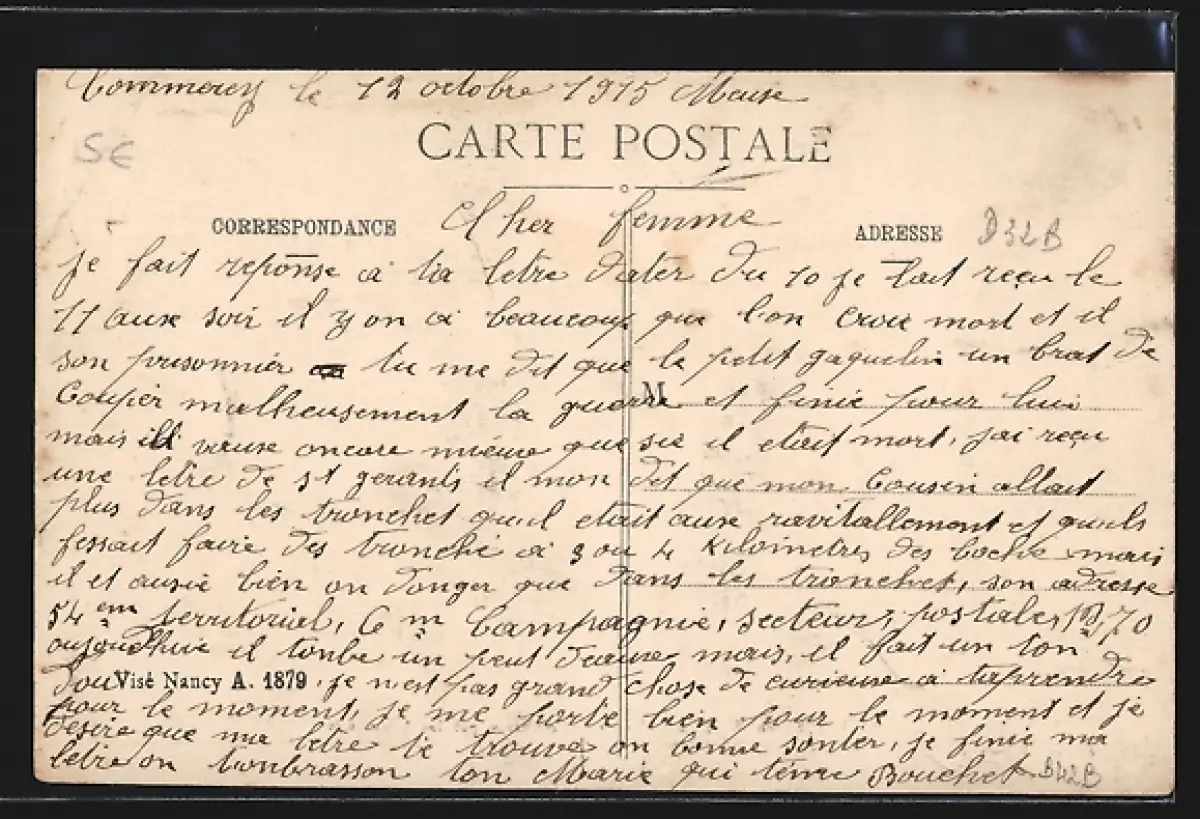 Commercy le 12 octobre 1915 Meuse
5€
CARTE POSTALE
CORRESPONDANCE
Cher femme
ADRESSE
D32B
je fait reponse a ta letre dater du 10 je lait reçu le
11 ause soir il y on a beaucoup que lon croie mort et il
son prisonnier tu me dit que le petit gaquelin un brat de
Couper malheusement la guerre et finie pour luui
M
mais ill veuse oncore mieuse que sie il etait mort, jai reçu
une letre de st gerants il mon dit que mon Cousin allait
plus dans les tronchet quil etait ause ravitallement et quils
fessait faire des tronché a 3 ou 4 kilometres des boche mais
il et ausie bien on donger que dans les tronchet, son adresse
54 em territoriel, 6 m Campagnie, secteur, postale, 70
oujourdhuie il tonbe un peut deause mais, il fait un ton
douVisé Nancy A. 1879. je n'est pas grand chose de curieuse a taprendre
pour le moment, je me porte bien pour le moment et je
desire que ma letre te trouve on bonne sonter, je finie ma
letre on tonbrasson ton Marie qui téme Bouchet
D32B